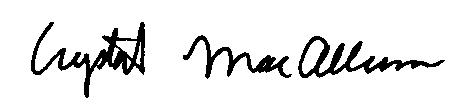 Crystal MacAllum